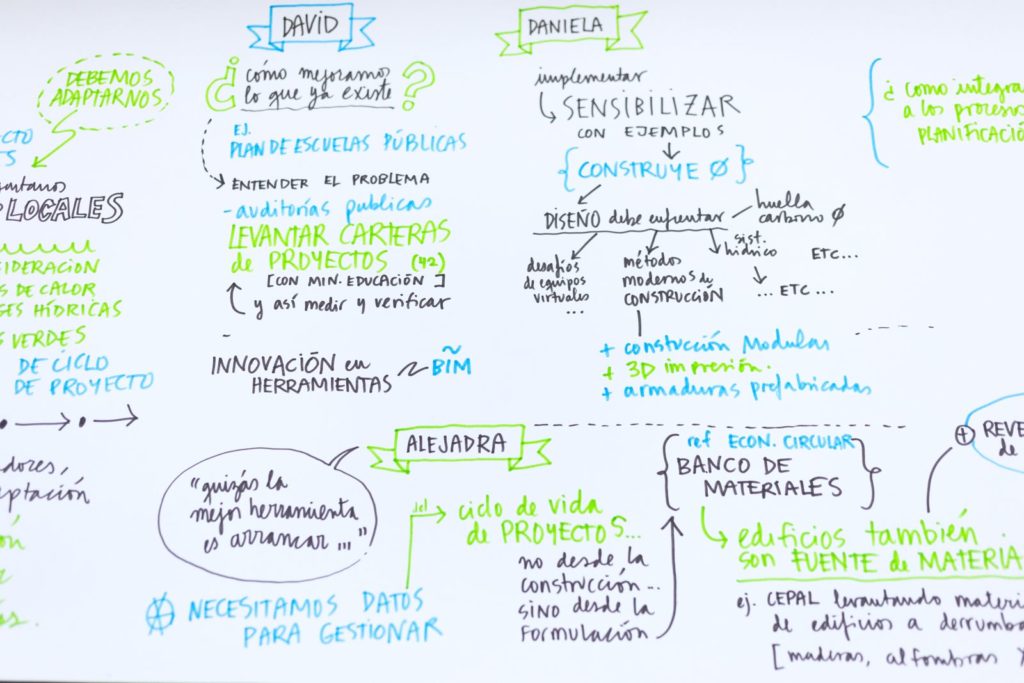 DEBEMOS
ADAPTARNOS
LOCALES
DE CALOR
HÍDRICAS
VERDES
DE CICLO
DE PROYECTO
DAVID
¿cómo mejoramos
lo que ya existe?
EJ.
PLAN DE ESCUELAS PÚBLICAS
ENTENDER EL PROBLEMA
- auditorías publicas
LEVANTAR CARTERAS
de PROYECTOS (42)
[CON MIN. EDUCACIÓN]
y así medir y verificar
-
INNOVACIÓN en
HERRAMIENTAS
BIM
DANIELA
implementar
SENSIBILIZAR
CON EJEMPLOS
{CONSTRUYE Ø}
DISEÑO debe enfrentar
huella
carbono Ø
desafíos
de equipos
virtuales
...
métodos
modernos de
CONSTRUCCIÓN
sist.
hídrico
ETC...
... ETC ...
+ constucción Modular
+ 3D impresión.
+ armaduras prefabricadas
¿ como integra
a los proceso
PLANIFICACIÓ
ALEJADRA
"quizás la
mejor herramienta
es arrancar..."
NECESITAMOS DATOS
PARA GESTIONAR
del
ciclo de vida
de PROYECTOS...
no desde la
construcción...
sino desde la
FORMULACIÓN
ref ECON. CIRCULAR
BANCO DE
MATERIALES
edificios también
son FUENTE de MATERIA
ej. CEPAL levantando materi
de edificios a derrumba
[maderas, alfombras
+ REVE
de